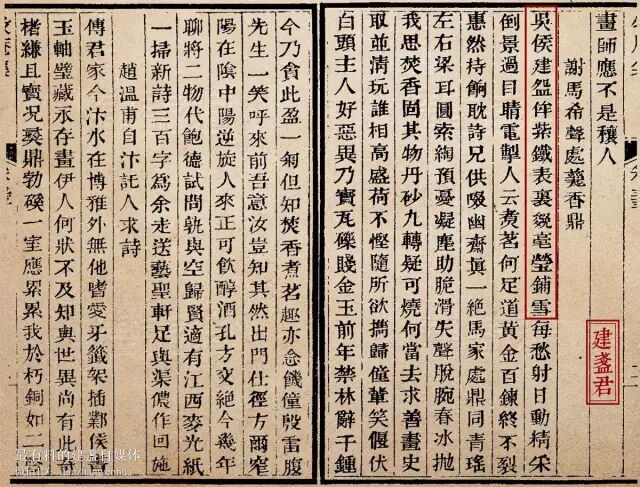 畫師應不是穰人
謝馬希聲處香鼎
吳侯建盌侔紫鐵表裏毫瑩鋪雪每愁射日動精采
倒景過目睛電掣人云煑茗何足道黃金百鍊終不裂
惠然持餉耽詩兄供啜幽齋眞一絕馬家處鼎同青瑤
左右梁耳圓索綯預憂凝塵助脆滑失聲脫腕春冰抛
我思焚香固其物丹砂九轉疑可燒何當去求善畫史
取並清玩誰相高盛荷不慳隨所欲擕歸僮輩笑偃伏
白頭主人好惡異乃實瓦礫賤金玉前年禁林辭千鍾
建盞君
今乃貪此盈一匊但知焚香煮茗趣亦念饑僮殷雷腹
先生一笑呼來前吾意汝豈知其然出門仕徑方爾窄
陽在陰中陽逆旋人來正可飲醇酒孔方交絕今幾年
聊將二物代飽德試問孰與空歸賢適有江西麥光紙
一掃新詩三百字為余走送藝聖軒足與渠儂作回施
趙溫甫自汴託人求詩
傅君家今汴水在博雅外無他嗜愛牙籤架插鄴侯書
玉軸璧藏永存畫伊人何狀不及知與世異尚有此
楮縑且寶况彝鼎勃磎一室應累累我於朽銅如二
最有料的建盏自媒体